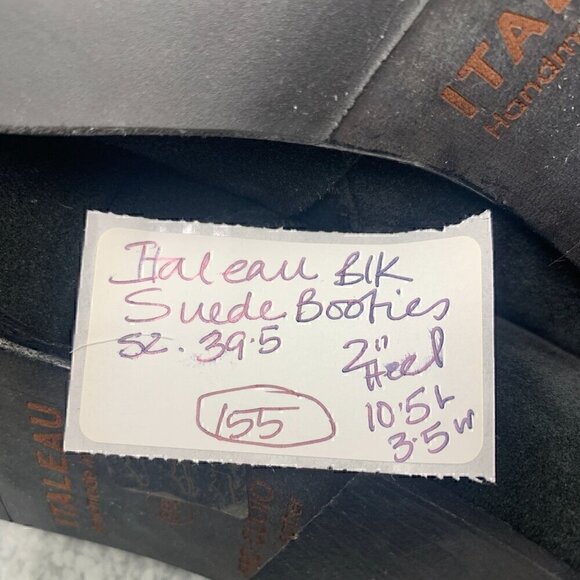 ITAL
Handm
Italeau Blk
Suede Booties
sz. 39.5
2"
Heel
10.5 L
3.5 w
155
ITALEAU